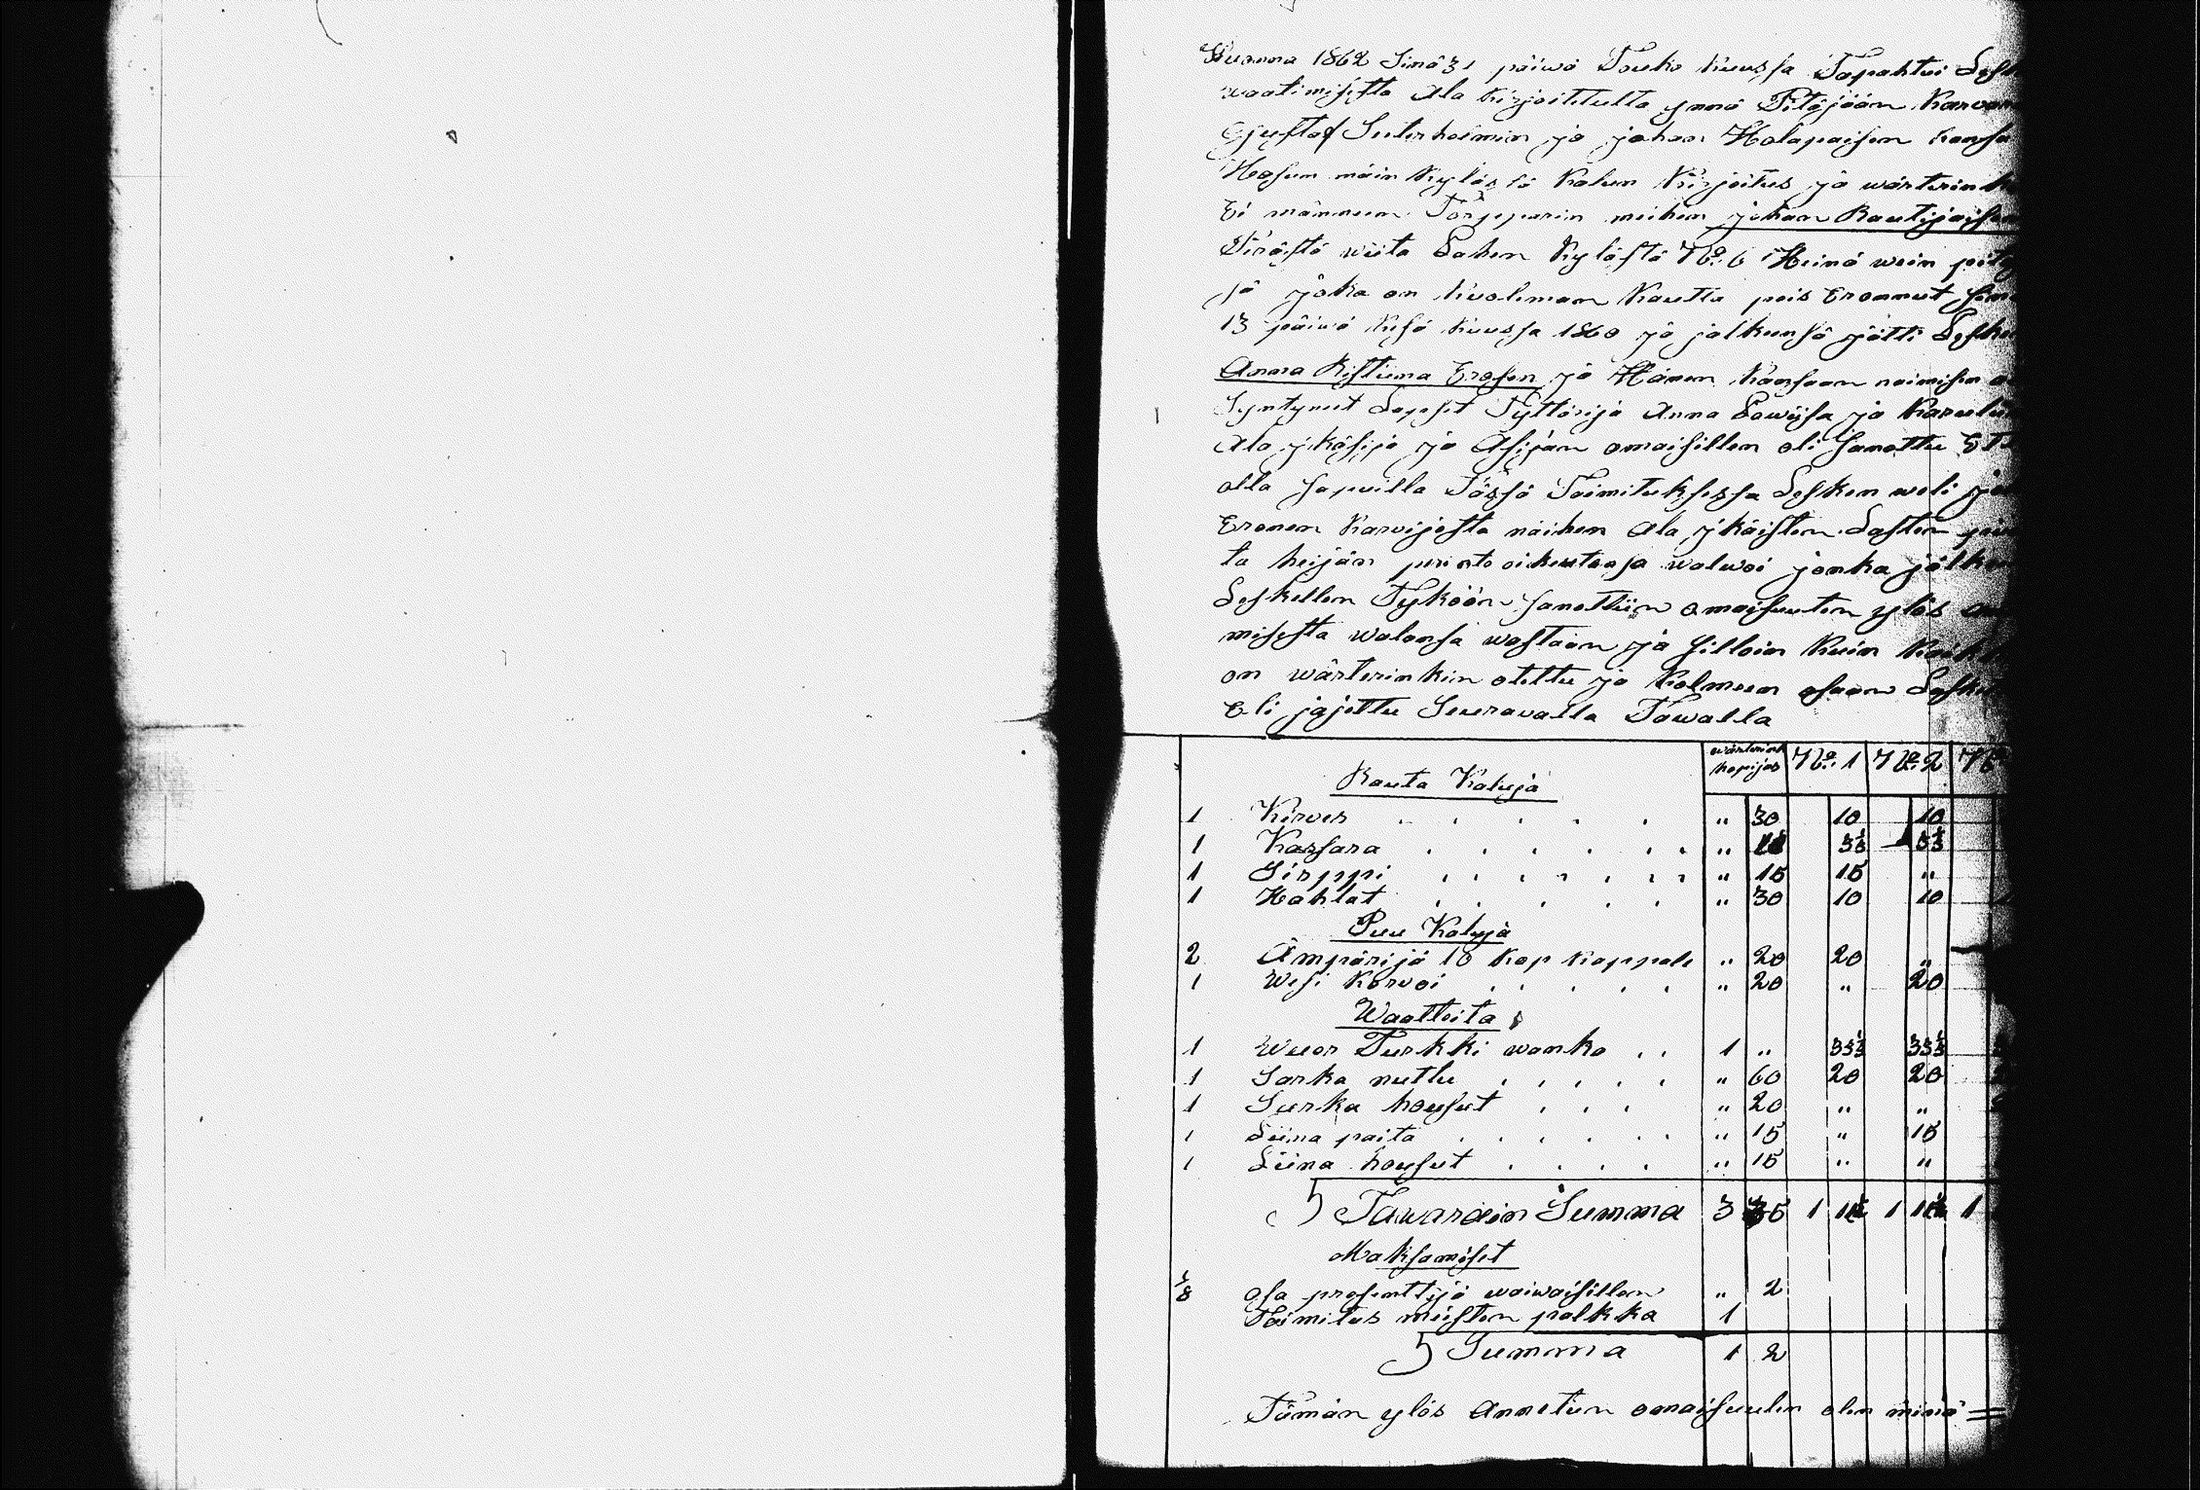 Wuonna 1862 Sinä 31 päiwä Touko kuussa Tapahtui Lesk
waatimisesta Ala kirjoitetulta ynnä Pitäjään Karvar
Gustaf Seterholmin ja johan Holapaisen kansa
kylässä Kalun Kirjoitus ja wärterink
Ei männeen Torpparin meihen johan Rautijaisen
wiita Lahen kylästä No 6 Heinä wein pitä
jä joka on kuoleman Kautta pois Eronnut sinä
13 päiwä kesä kuussa 1860 ja jälkeensä jätti Lesken
Anna Ristiina Erosen ja Hänen Kansaan naimisen
Syntynet Lapset Tyttärijä Anna Lowijsa ja Karuliina
Ala ikäsijä ja Asijan omaisillen oli sanottu Et
olla sapuilla Tässä Toimituksessa Lesken weli jo
Eronen Karvijosta näihen Ala ikäisten Lasten
ta heijän perinto oikeutansa walwoi jonka jälken
Leskellen Tyköön sanottiin omaisuuten ylös an
misesta walansa wastaan ja silloin kuin kaikki
on wärterinkin otettu ja kolmeen osaan Lesken
Eli jajettu Seuravalla Tawalla
wärterink kopijas No 1 No 2 No
Rauta Kaluja
1 Kirves . . . . . " 30 10 10
1 Kassara . . . . . . " 3⅓ 3⅓
1 Sirppi . . . . . . . " 15 15 "
1 Hahlat . . . . . " 30 10 10
Puu Kaluja
2 Ämpärijä 10 kop kappale " 20 20 "
1 Wesi korvoi . . . . . " 20 " 20
Waatteita
1 Wuor Turkki wanha . . 1 " 33⅓ 33⅓
1 Sarka nuttu . . . . . " 60 20 20
1 Surka housut . . . " 20 " "
1 Liina paita . . . . . . " 15 " 15
1 Liina housut . . . . " 15 " "
Tawarain Summa 3 1 1 1
Maksamiset
⅛ osa prosenttijä waiwaisillen " 2
Toimitus miesten palkka 1
Summa 1 2
Tämän ylös Annetun omaisuulen olen minä =